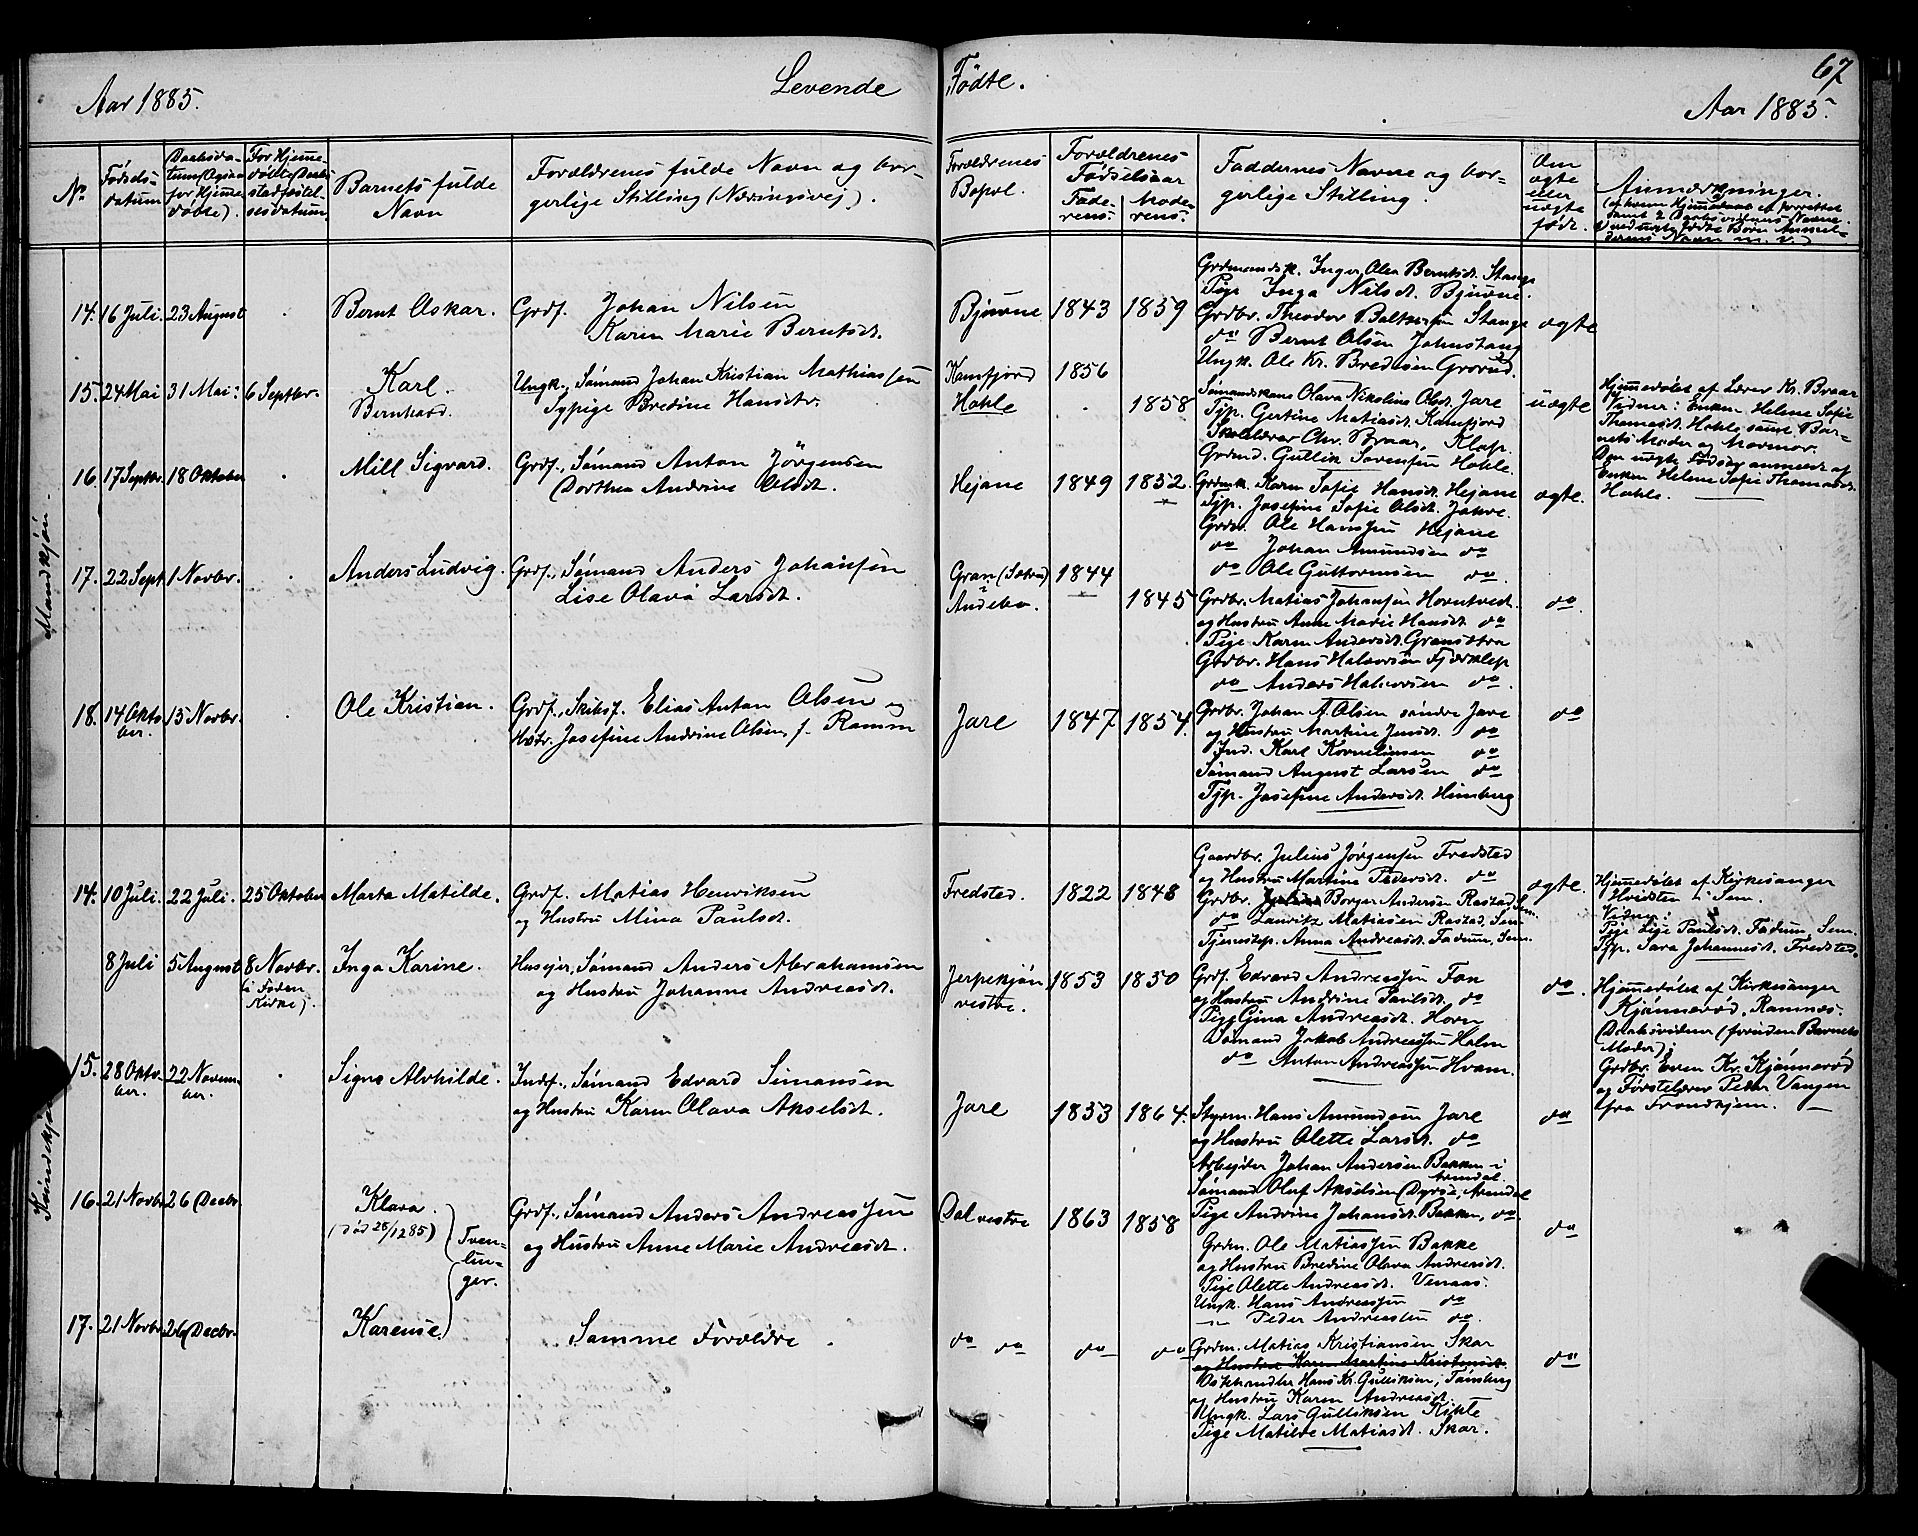 Levende Födte.
67
Aar 1885.
Aar 1885.
No
Födsels-
datum
Daabsda-
tum (Ogsaa
for Hjemme
döbte).
For Hjemme-
döbte Daabs
stadfæstel-
sesdatum
Barnets fulde
Navn
Forældrenes fulde Navn og bor-
gerlige Stilling (Næringsvej).
Forældrenes
Bopæl.
Forældrenes
Födselsaar
Fade-
rens.
Mode-
rens.
Faddernes Navne og bor-
gerlige Stilling.
Om
ægte
eller
uægte
födt.
Anmærkninger.
Mandkjøn.
14. 16 Juli. 23 August
Bernt Oskar.
Grdf. Johan Nilsen
Karen Marie Berntsdt.
Bjuerne 1843 1859
Grdmandsk. Inger Olea Berntsdt. Stange
Pige Inga Nilsdt. Bjuerne.
Grdbr. Theodor Baltsersen Stange
do Bernt Olsen Johnstang
Ungk. Ole Kr. Bredesen Grorud.
ægte
15. 24 Mai 31 Mai: 6 Septbr.
Karl
Bernhard.
Ungk., Sömand Johan Kristian Mathiassen
Sypige Bredine Hansdtr.
Kamfjord 1856
Hohle 1858
Sömandskone Olava Nikoline Olsdt. Jare
Tjp. Gertine Matiasdt. Kamfjord
Skolelærer Chr. Braar, Klop.
Grdmd. Gullik Sorensen Hohle.
uægte
Hjemmedöbt af Lærer Kr. Braar
Vidner: Enken Helene Sofie
Thomasdt. Hohle samt Bar-
nets Moder og Mormor.
Den uægte Födsel anmeldt af
Enken Helene Sofie Thomasdt.
Hohle.
16. 17 Septbr. 18 Oktober
Mill Sigvard.
Grdf., Sömand Anton Jörgensen
Dorthea Andrine Olsdt.
Hejane 1849 1852.
Grdmk. Karen Sofie Hansdt. Hejane
Tjp. Josefine Sofie Olsdt. Johre.
Grdm. Ole Hanssen Hejane
do Johan Amundsen do
do Ole Guttormsen do.
ægte.
17. 22 Sept. 1 Novbr.
Anders Ludvig.
Grdf., Sömand Anders Johansen
Lise Olava Larsdt.
Gran 1844
Andebu. 1845
Grdbr. Matias Johansen Horntvedt
og Hustru Anne Marie Hansdt. do
Pige Karen Andersdt. Gransætra
Grdbr. Hans Halvorsen Fjærklep
do Anders Halvorsen do.
do.
18. 14 Okto
ber. 15 Novbr.
Ole Kristian.
Grdf., Skibsf. Elias Anton Olsen og
Hstr. Josefine Andrine Olsen f. Ramm
Jare 1847 1854.
Grdbr. Johan A. Olsen söndre Jare
og Hustru Martine Jensdt. do
Ind. Karl Kornelinsen do
Sömand August Larsen do
Tjp. Josefine Andersdt. Himberg
do
Kvindekjøn
14. 10 Juli. 22 Juli. 25 Oktober
Marta Matilde.
Grdf. Matias Henriksen
og Hustru Mina Paulsdt.
Fredsted. 1822 1848
Gaardbr. Julius Jörgensen Fredsted
og Hustru Martine Pedersdt. do
Grdbr. Borger Andersen Rastad, Sem.
do Lauritz Matiasen Rastad, Sem
Tjenestep. Anna Andreasdt. Fadum, Sem.
ægte.
Hjemmedöbt af Kirkesanger
Hvidsten i Sem.
Vidner:
Pige Lise Paulsdt. Fadum, Sem.
Tjp. Sara Johannesdt. Fredsted.
8 Juli 5 August 8 Novbr.
i Foden
Kirke).
Inga Karine.
Huseier, Sömand Anders Abrahamsen
og Hustru Johanne Andreasdt.
Jerpekjøn
vestre. 1853 1850
Grdf. Edvard Andreassen Fon
og Hustru Andrine Paulsdt. do
Pige Gina Andreasdt. Horn
Sömand Jakob Andreassen Holm
do Anton Andreassen Hvam.
do.
Hjemmedöbt af Kirkesanger
Kjönneröd, Ramnæs.
Daabsvidner (foruden Barnets
Moder):
Grdbr. Even Kr. Kjönneröd
og Förstelærer Peder Vangen
fra Trondhjem.
15. 28 Oktv.
ber. 22 Novem-
ber.
Signe Alvhilde.
Indf., Sömand Edvard Simonsen
og Hustru Karen Olava Akselsdt.
Jare 1853 1864.
Styrm. Hans Amundsen Jare
og Hustru Olette Larsdt. do
Arbejder Johan Andersen Bakken i
Arendal
Sömand Oluf Akselsen (Dyrsø, Arendal
Pige Andrine Johansdt. Bakken, do.
do
16. 21 Novbr 26 Decbr.
Klara.
(död 28/12 85)
Tven-
lin-
ger.
Grdf., Sömand Anders Andreassen
og Hustru Anne Marie Andreasdt.
Dal vestre 1863 1858
Grdm. Ole Matiassen Bakke
og Hustru Bredine Olava Andreasdt.
Pige Olette Andreasdt. Venaas.
Ungk. Hans Andreassen do
Peder Andreassen do.
do
17. 21 Novbr 26 Decbr.
Karense.
Samme Forældre.
do do do do
Grdm. Matias Kristiansen Skar
og Hustru Karen Martine Kristensdt.
Hans Kr. Gulliksen, Tönsberg
og Hustru Karen Andreasdt.
Ungk. Lars Gulliksen Kihle
Pige Matilde Matiasdt. Skar.
do